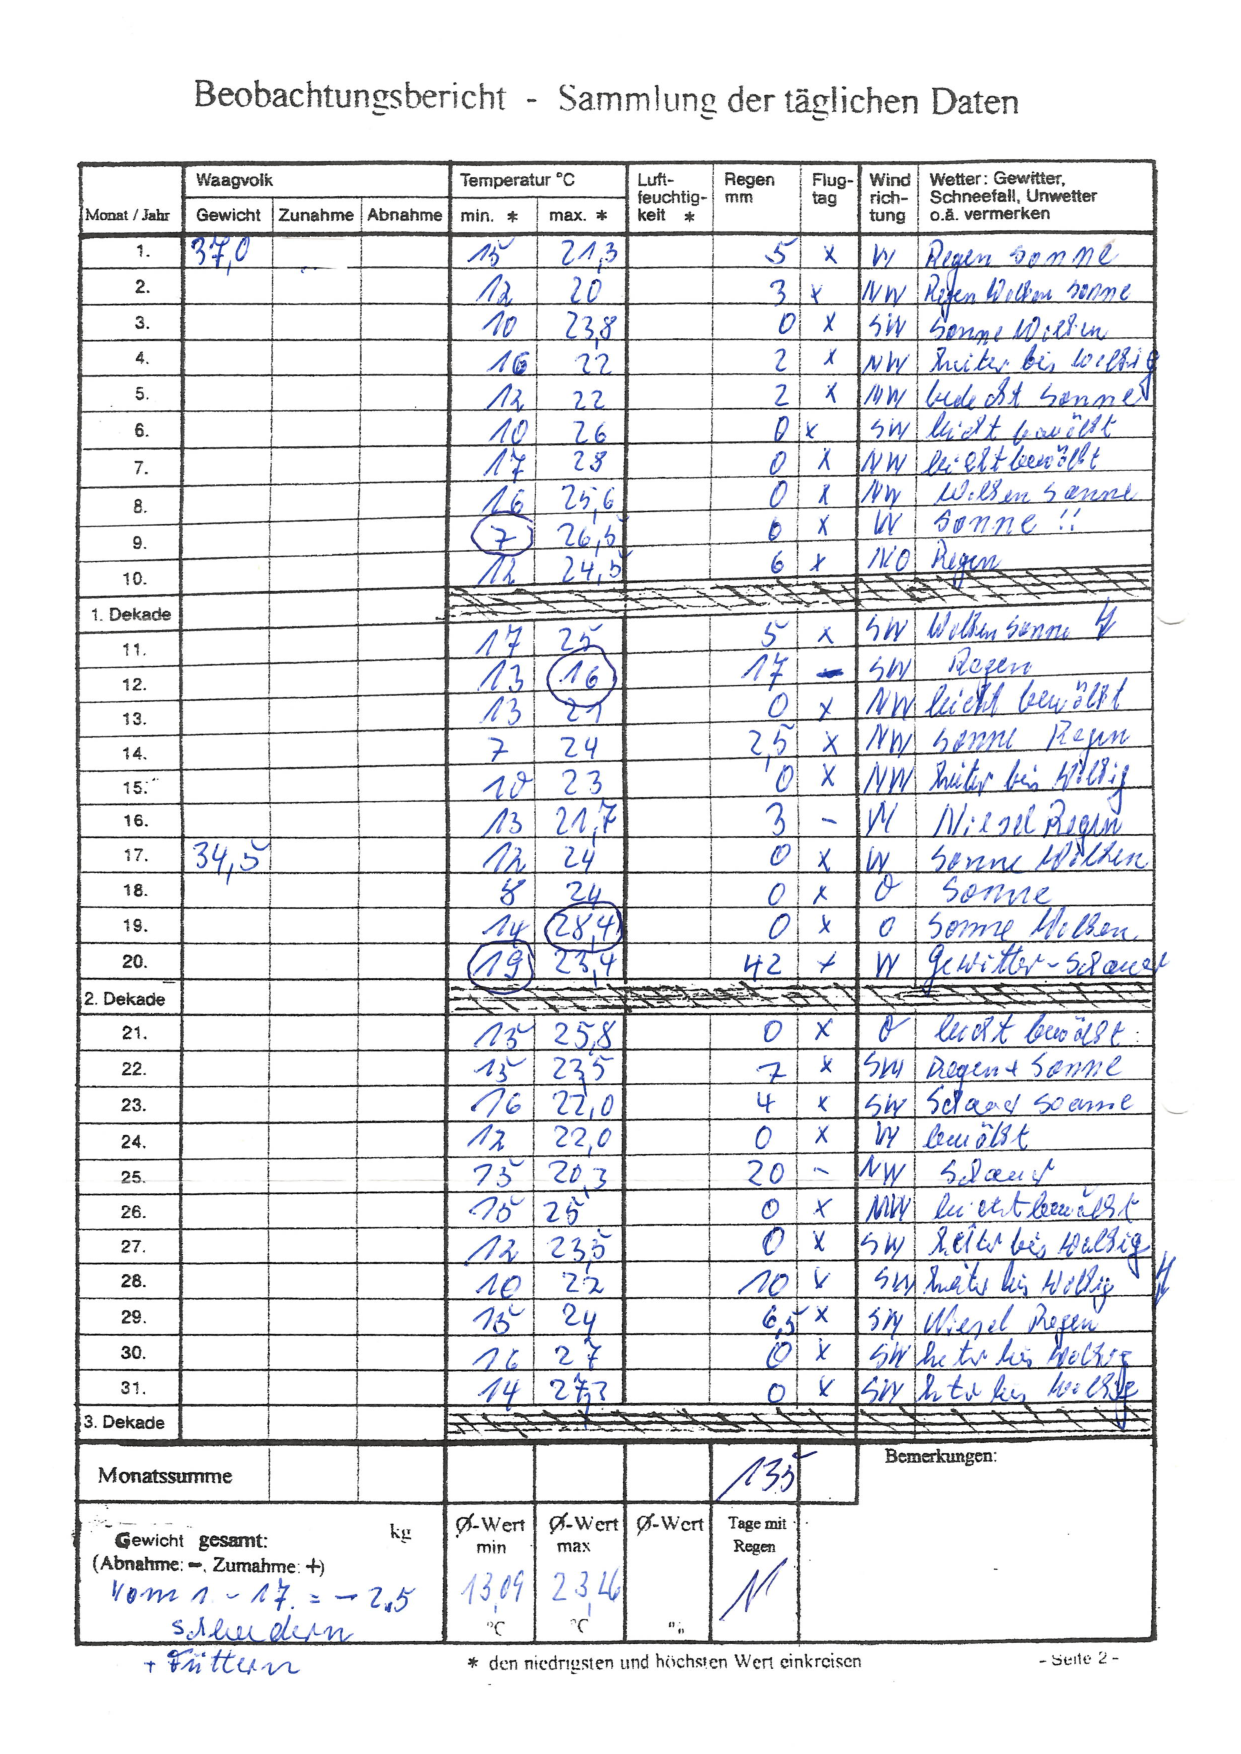 Beobachtungsbericht - Sammlung der täglichen Daten
Monat / Jahr Waagvolk Temperatur °C Luft-feuchtig-keit * Regen mm Flug-tag Wind rich-tung Wetter: Gewitter, Schneefall, Unwetter o.ä. vermerken
Gewicht Zunahme Abnahme min. * max. *
1. 37,0 15 21,3 5 x W Regen Sonne
2. 12 20 3 x NW Regen Wolken Sonne
3. 10 23,8 0 x SW Sonne Wolken
4. 16 22 2 x NW heiter bis wolkig
5. 12 22 2 x NW bedeckt Sonne
6. 10 26 0 x SW leicht bewölkt
7. 17 23 0 x NW leicht bewölkt
8. 16 25,6 0 x NW Wolken Sonne
9. 7 26,5 0 x W Sonne !!
10. 12 24,5 6 x NO Regen
1. Dekade
11. 17 25 5 x SW Wolken Sonne
12. 13 16 17 - SW Regen
13. 13 21 0 x NW leicht bewölkt
14. 7 24 2,5 x NW Sonne Regen
15. 10 23 0 x NW heiter bis wolkig
16. 13 21,7 3 - W Niesel Regen
17. 34,5 12 24 0 x W Sonne Wolken
18. 8 24 0 x O Sonne
19. 14 28,4 0 x O Sonne Wolken
20. 19 23,4 42 + W Gewitter-Schauer
2. Dekade
21. 15 25,8 0 x O leicht bewölkt
22. 15 23,5 7 x SW Regen + Sonne
23. 16 22,0 4 x SW Schauer Sonne
24. 12 22,0 0 x W bewölkt
25. 15 20,3 20 - NW Schauer
26. 15 25 0 x NW leicht bewölkt
27. 12 23,5 0 x SW heiter bis wolkig
28. 10 22 10 x SW heiter bis wolkig
29. 15 24 6,5 x SW Niesel Regen
30. 16 27 0 x SW heiter bis wolkig
31. 14 0 x SW heiter bis wolkig
3. Dekade
Monatssumme 135 Bemerkungen:
Gewicht gesamt: kg Ø-Wert min Ø-Wert max Ø-Wert Tage mit Regen
(Abnahme: -, Zumahme: +)
vom 1. - 17. = - 2,5 13,09 °C 23,46 °C %
schleudern
+ Füttern
* den niedrigsten und höchsten Wert einkreisen - Seite 2 -